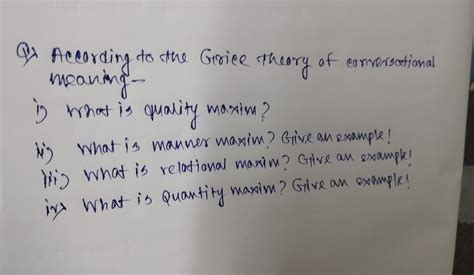 Q) According to the Grice theory of conversational
meaning-
i) What is quality maxim?
ii) What is manner maxim? Give an example!
iii) What is relational maxim? Give an example!
iv) What is Quantity maxim? Give an example!